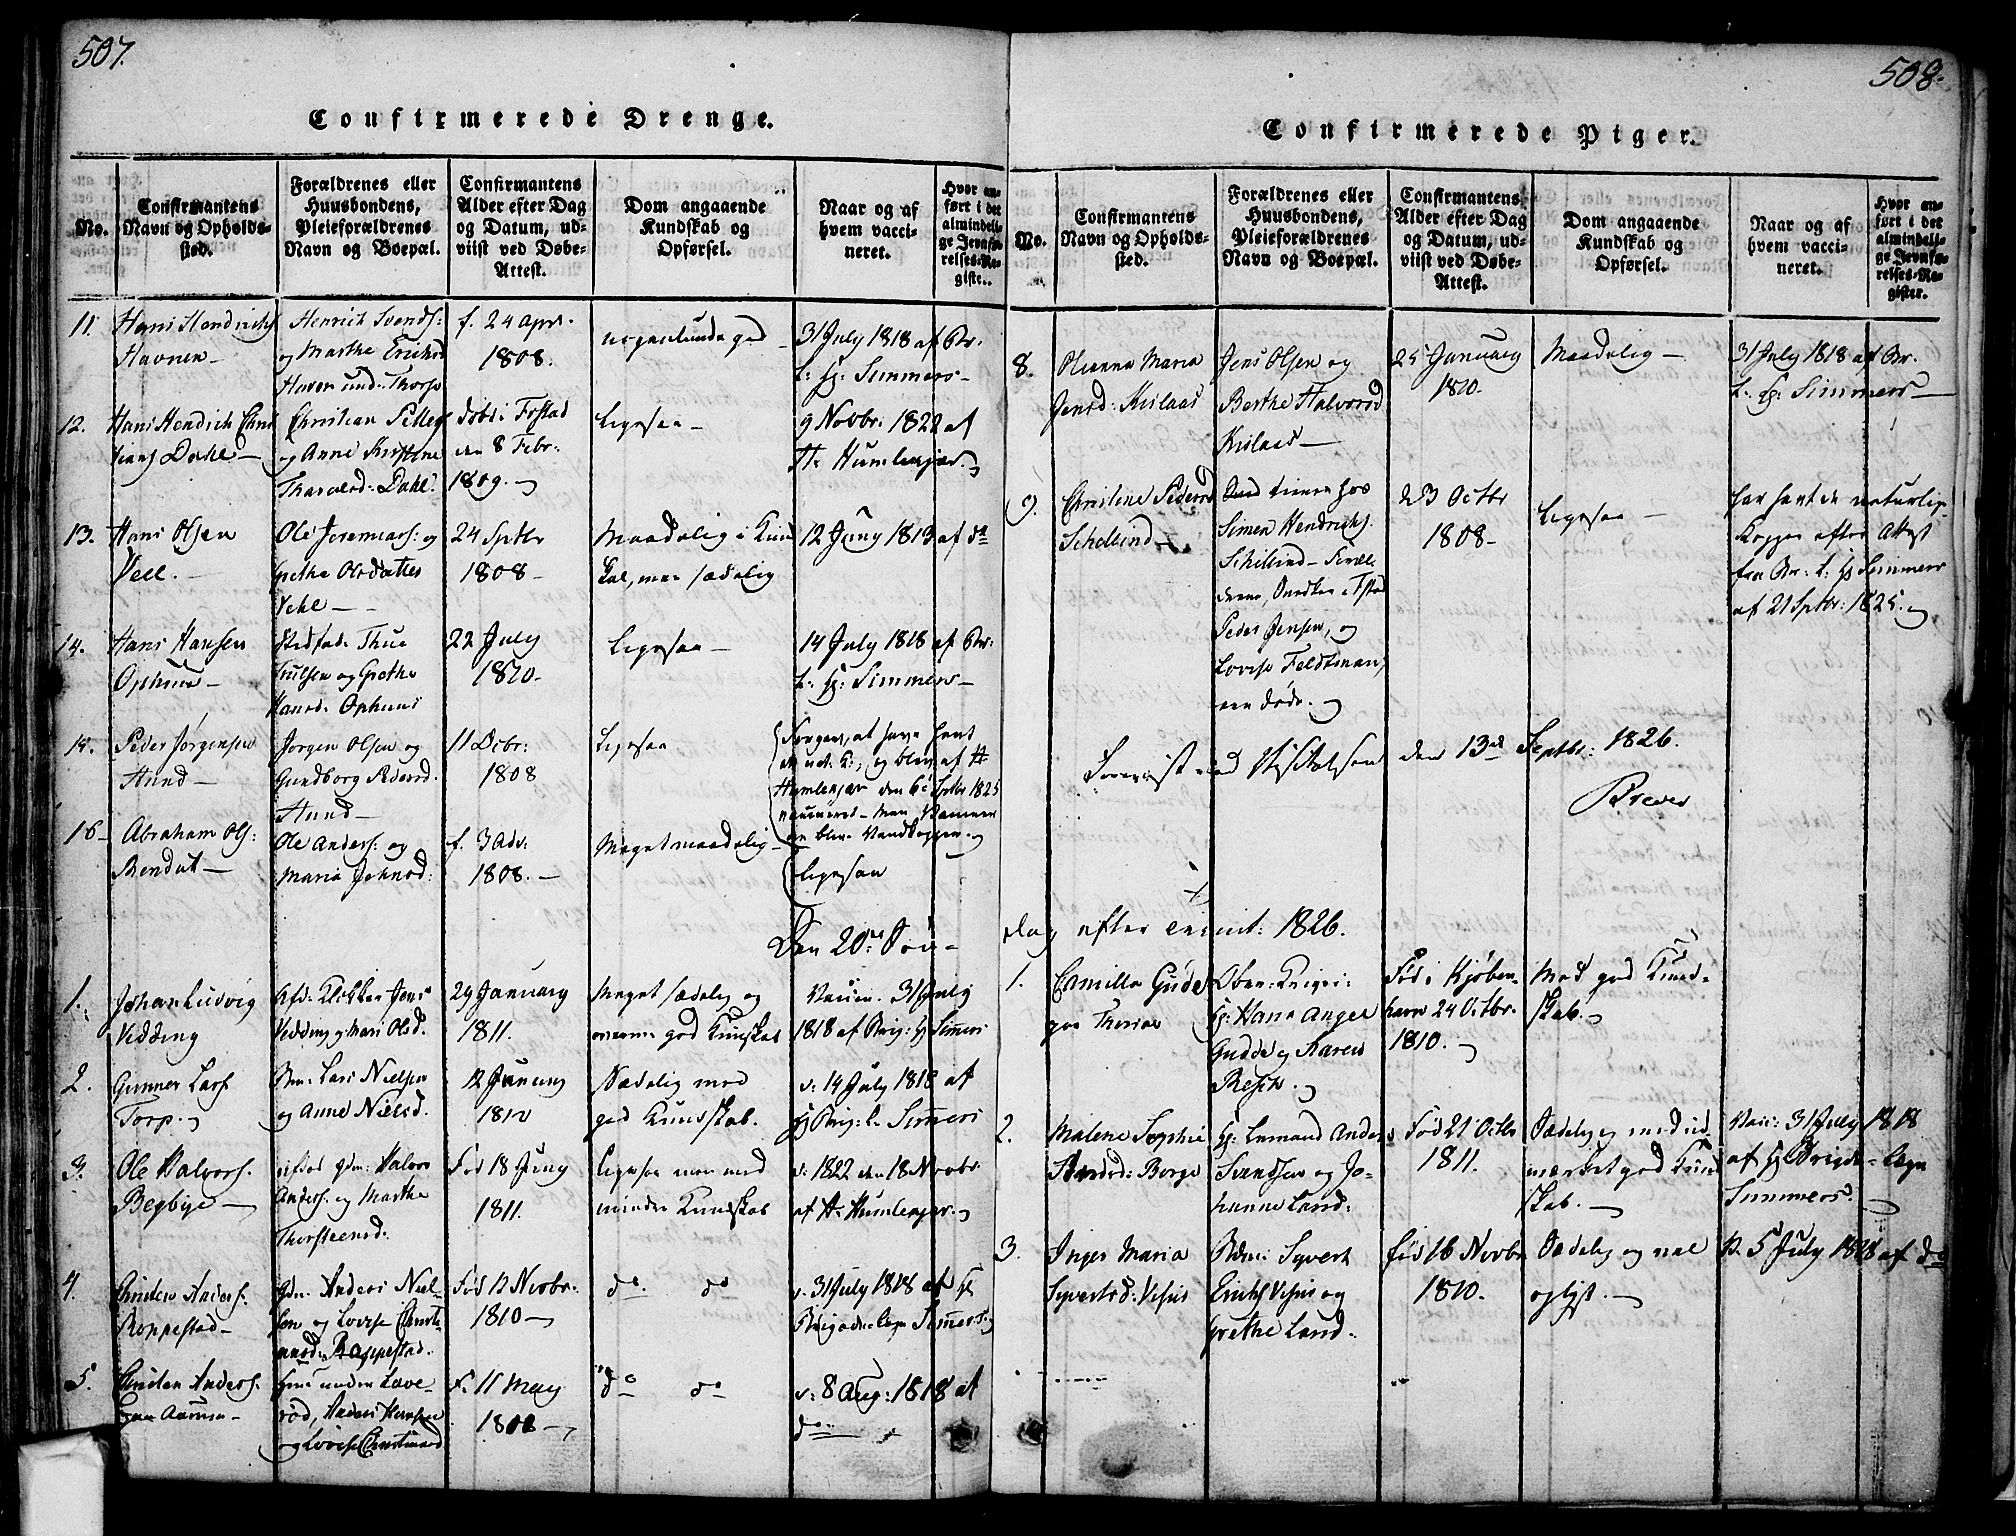 507.
Confirmerede Drenge.
No.
Confirmantens Navn og Opholds-sted.
Forældrenes eller Huusbondens, Pleieforældrenes Navn og Boepæl.
Confirmantens Alder efter Dag og Datum, ud-viist ved Døbe-Attest.
Dom angaaende Kundskab og Opførsel.
Naar og af hvem vacci-neret.
Hvor an-ført i det almindeli-ge Jevnfø-relses-Re-gister.
11. Hans Hendrichs
Havnen —
Henrich Svends:
og Marthe Erichsd
Haven und: Thorp
f. 24 apr.
1808.
31 July 1818 af Br:
L: Hr: Simmers —
12. Hans Hendrich Chris
tians Dahle —
Christian Pelleg
og Anne Kirstine
Tharaldsd: Dahl.
døbt i Frstad
den 8 Febr:
1809.
Ligesaa —
9 Novbr: 1822 af
Hr Humlenjær.
13. Hans Olsen
Vell. —
Ole Jeremias: og
Grethe Olsdatter
Vehl —
24 Sptbr
1808 —
Maadelig i Kund
skab, men sædelig
12 Juny 1813 af do
14. Hans Hansen
Ophuus —
Stedfad: Thue
Truelsen og Grethe
Hansd: Ophuus
22 July
1810 —
Ligesaa —
14 July 1818 af Br:
L: Hr: Simmers —
15. Peder Jörgensen
Hund —
Jørgen Olsen og
Gundborg Pedersd.
Hund —
11 Dcbr:
1808
Ligesaa
og blev af Hr
Humlenjær den 6e Sptbr 1825
vaccineret — men
blev Vandkopper.
16 — Abraham Ols:
Rendal —
Ole Anders: og
Maria Johnsd:
1808. —
Meget maadelig —
Ligesaa
Den 20de Søn-
1. Johan Ludvig
Vedding
Afd: Klokker Jens
Vedding og Mari Olsd.
29 January
1811.
Meget sædelig og
god Kundskab
Vaccin. 31 July
1818 af Brig: Hr Simers:
2. Gunner Lars
Torp.
Lars Nielsen
og Anne Nielsd.
12 January
Sædelig med
god Kundskab.
v: 14 July 1818 af
Hr Brig: L. Simers
3. Ole Halvors:
Begbye —
Gdm: Halvor
Anders: og Marthe
Thorsteensd:
Fød 18 Juny
1811.
Ligesaa men med
mindre Kundskab
v: 1822 den 18 Novbr:
af Hr Humlenjær.
4. Christen Anders:
Roppestad —
Gdm: Anders Niel-
sen og Lovise Christi-
ansd: Rappestad.
Fød 12 Novbr:
1810 —
do. do
v. 31 July 1818 af Hr
Brigade: Læge Simers:
5. Christen Anders:
Huus under Lave-
rød, Anders Hansen
og Lovise Christiansd
F. 11 May
1808 —
do do
v: 8 Aug: 1818 af
do —
508.
Confirmerede Piger.
No.
Confirmantens Navn og Opholds-sted.
Forældrenes eller Huusbondens, Pleieforældrenes Navn og Boepæl.
Confirmantens Alder efter Dag og Datum, ud-viist ved Døbe-Attest.
Dom angaaende Kundskab og Opførsel.
Naar og af hvem vacci-neret.
Hvor an-ført i det almindeli-ge Jevnfø-relses-Re-gister.
8. Oleanna Maria
Jensd: Kislaas
Jens Olsen og
Berthe Halvorsd
Kislaas —
25 January
1810.
Maadelig —
31 July 1818 af Br.
L: Hr: Simmers —
9. Christine Pedersd
Schillind —
tiener hos
Simen Hendrichs.
Schillind — Foræl
drene,
Peder Jensen, og
Lovise Feldtman,
ere døde.
23 Octbr
1808 —
Ligesaa —
har havt de naturlige
Kopper efter Attest
fra Br: L: Hr Simmers
af 21 Sptbr: 1825.
Foreviist ved Visitatsen den 13de Septbr: 1826.
dag efter Trinit: 1826.
1. Camilla Gude
paa Thorsøe
Krigs:
Hr: Hans Anger
Gude og Karen
Resch.
Fød i Kjøben-
havn 24 Octbr.
1810.
Med god Kund-
skab.
2. Malene Sophie
Svendsd: Borge
Hr: Lnsmand Anders
Svendsen og Jo-
hanne Land:
Fød 21 Octbr
1811.
Sædelig med ud
mærket god Kund
skab. —
Vacc: 31 July 1818
af Hr Brigde-Læge
Simmers. —
3. Inger Maria
Syvertsd: Visius
Syvert
Erichs Visius og
Grethe Land.
fød 16 Novbr
1810.
Sædelig og vel
oplyst. —
V. 5 July 1818 af do